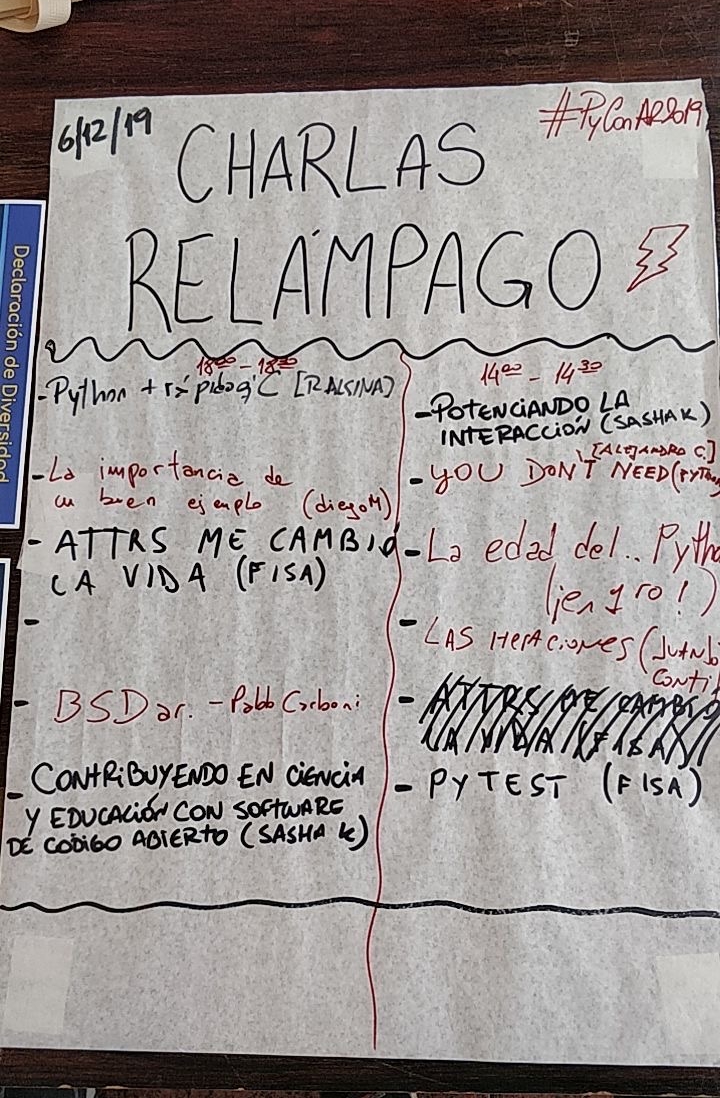 6/12/19
#PyConAR2019
CHARLAS
RELÁMPAGO
Declaración de Diversidad
18:00 - 18:30
- Python + rápido q' C [RALSINA]
- La importancia de
un buen ejemplo (diegoM)
- ATTRS ME CAMBIÓ
LA VIDA (FISA)
-
- BSDar. - Pablo Carboni
- CONTRIBUYENDO EN CIENCIA
Y EDUCACIÓN CON SOFTWARE
DE CÓDIGO ABIERTO (SASHA K)
14:00 - 14:30
- POTENCIANDO LA
INTERACCIÓN (SASHA K)
[ALEJANDRO C.]
- YOU DON'T NEED (PYTHON
- La edad del.. Pytho
(jengro!)
- LAS ITERACIONES (JUANJO
CONTI
- ATTRS ME CAMBIÓ
LA VIDA (FISA)
- PYTEST (FISA)